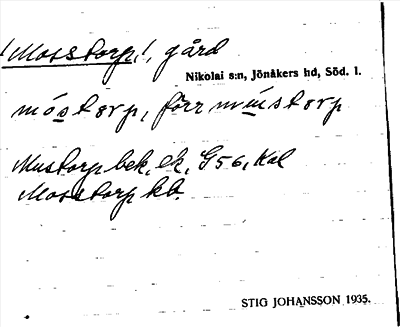 ! Mosstorp, !, gård
Nikolai s:n, Jönåkers hd, Söd. l.
móstorp, förr mùstorp
Mustorp bek, ek, G56, Kal
Mosstorp kb.
STIG JOHANSSON 1935.